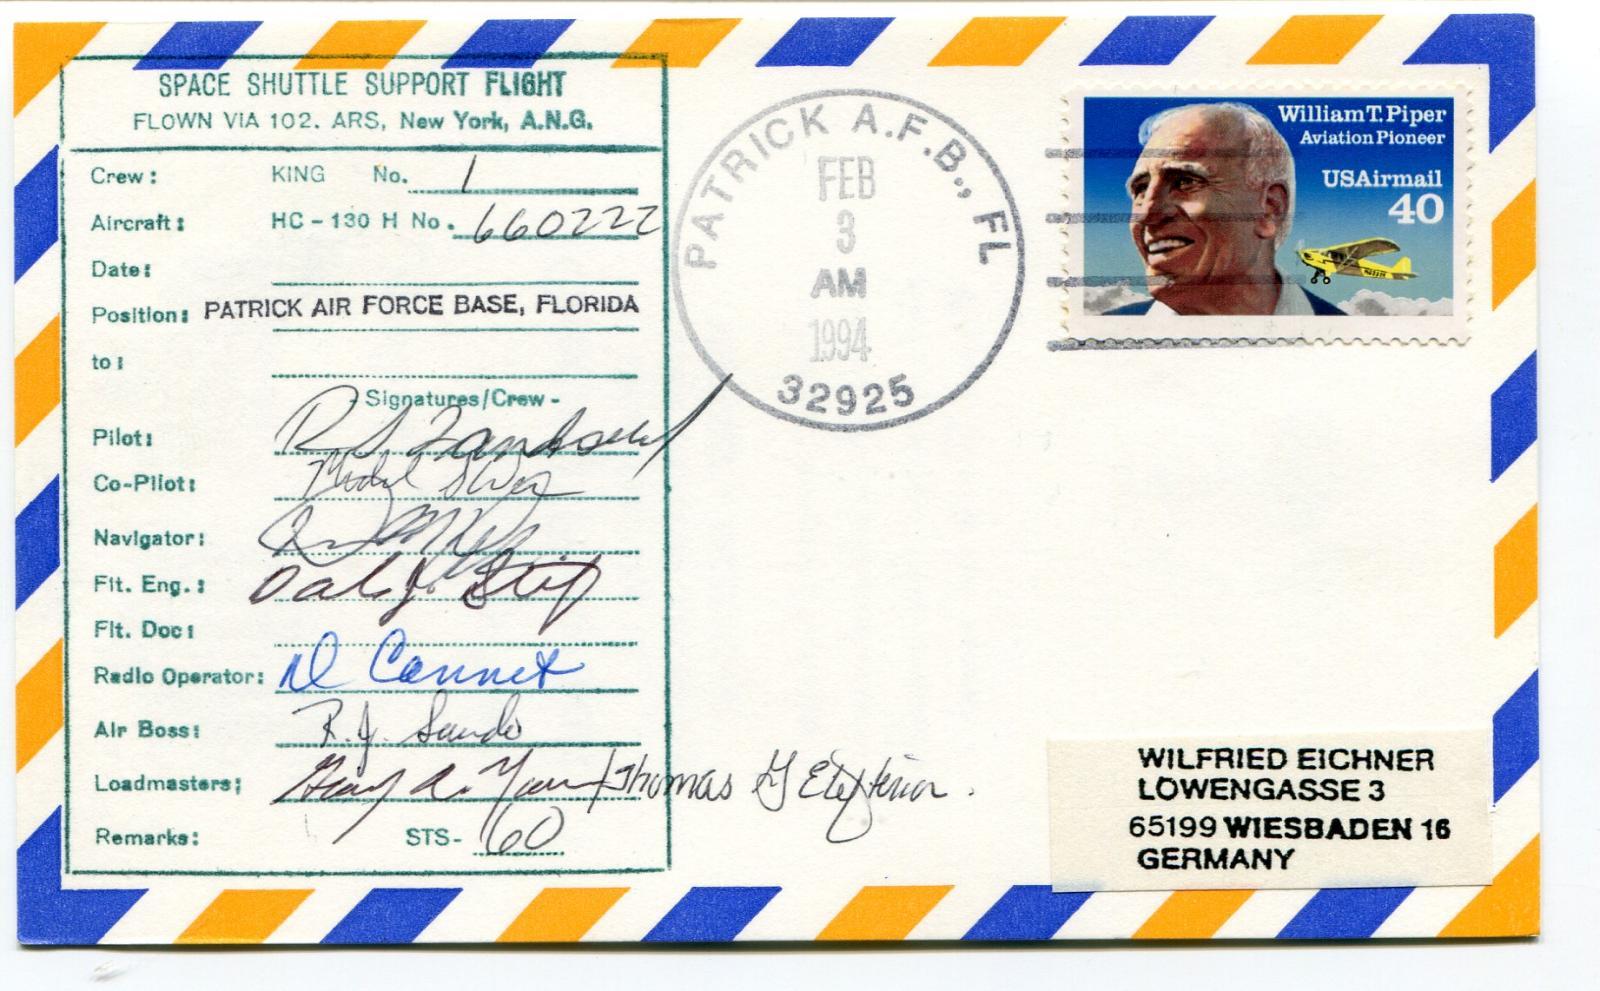 SPACE SHUTTLE SUPPORT FLIGHT
FLOWN VIA 102. ARS, New York, A.N.G.
Crew: KING No. 1
Aircraft: HC-130 H No. 660222
Date:
Position: PATRICK AIR FORCE BASE, FLORIDA
to:
- Signatures/Crew -
Pilot: R S
Co-Pilot:
Navigator:
Flt. Eng.: Dale J.
Flt. Doc:
Radio Operator:
Air Boss: R.J.
Loadmasters: Gary A. Thomas G
Remarks: STS-60
PATRICK A.F.B., FL
FEB
3
AM
1994
32925
William T. Piper
Aviation Pioneer
USAirmail
40
WILFRIED EICHNER
LÖWENGASSE 3
65199 WIESBADEN 16
GERMANY